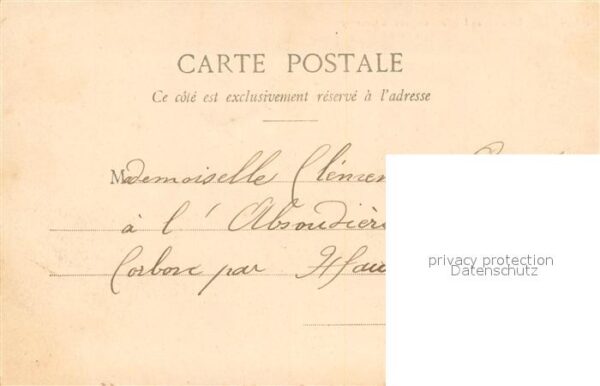 CARTE POSTALE
Ce côté est exclusivement réservé à l'adresse
Mademoiselle Clémen
à l'Absoudièr
Corbon par
privacy protection
Datenschutz